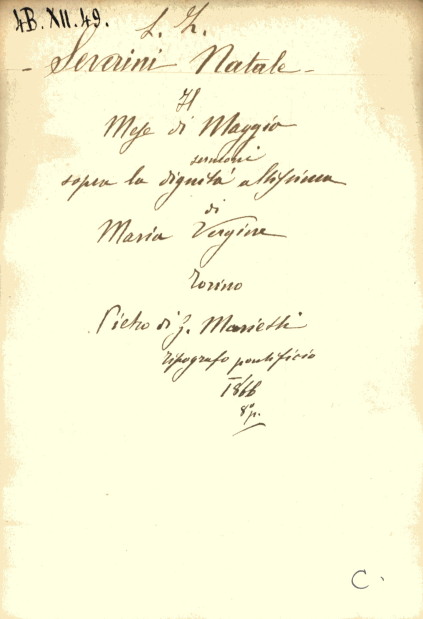 4B.XII.49.
L. Z.
- Severini Natale -
Il
Mese di Maggio
sermoni
sopra la dignitá altissima
di
Maria Vergine
Torino
Pietro di G. Marietti
tipografo pontificio
1866
8º p.
C.